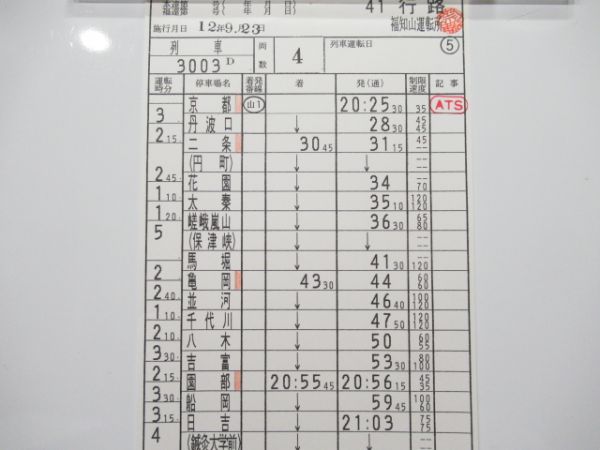 号( 年 月 日) 41 行路
施行月日 12年9月23日 福知山運転所
列車 両数 4 列車運転日 ⑤
3003D
運転時分 停車場名 着発番線 着 発(通) 制限速度 記事
京都 山1 20:25 30 35 ATS
3
丹波口 ↓ 28 30 45 45
2 15
二条 30 45 31 15 45 --
(円町) ↓ ↓ -- --
2 45
花園 ↓ 34 -- 70
1 10
太秦 ↓ 35 10 120 120
1 20
嵯峨嵐山 ↓ 36 30 65 80
5
(保津峡) ↓ ↓ -- --
馬堀 ↓ 41 30 -- 120
2
亀岡 43 30 44 60 60
2 40
並河 ↓ 46 40 100 120
1 10
千代川 ↓ 47 50 120 120
2 10
八木 ↓ 50 60 55
3 30
吉富 ↓ 53 30 80 100
2 15
園部 20:55 45 20:56 15 45 35
3 30
船岡 ↓ 59 45 100 60
3 15
日吉 ↓ 21:03 75 75
4
(鍼灸大学前) ↓ ↓ --